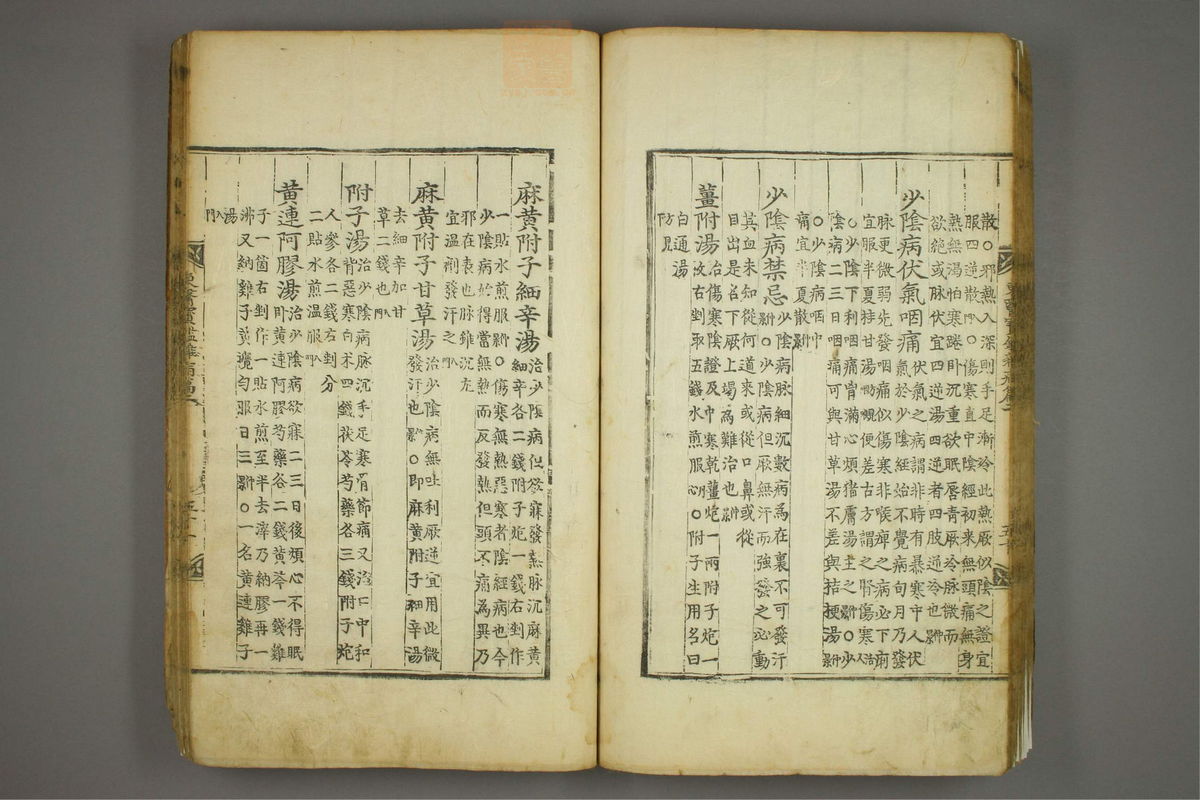 散○邪熱入深則手足漸冷此熱厥似陰之證宜
服四逆散入門○傷寒直中陰經初來無頭痛無身
熱無渴怕寒踡臥沉重欲眠唇青厥冷脉微而
欲絶或脉伏宜四逆湯四逆者四肢逆冷也仲景
少陰病伏氣咽痛伏氣之病謂非時有暴寒中人伏
氣於少陰經始不覺病旬月乃發
脉更微弱先發咽痛似傷寒非喉痺之病必下痢
宜服半夏桂甘湯便差古方謂之腎傷寒活人
○少陰下利咽痛胷滿心煩猪膚湯主之仲景○少
陰病二三日咽痛可與甘草湯不差與桔梗湯仲景
○少陰病咽中
痛宜半夏散仲景
少陰病禁忌少陰病脉細沉數病為在裏不可發汗
仲景○少陰病但厥無汗而強發之必動
其血未知從何道來或從口鼻或從
目出是名下厥上竭為難治也仲景
薑附湯治傷寒陰證及中寒乾薑炮一兩附子炮一
枚右剉取五錢水煎服○附子生用名曰
白通湯
方見下
麻黃附子細辛湯治少陰病但欲寐發熱脉沉麻黃
細辛各二錢附子炮一錢右剉作
一貼水煎服仲景○傷寒無熱惡寒者陰經病也今
少陰病於得當無熱而反發熱但頭不痛為異乃
邪在表也脉雖沉尤
宜溫劑發汗之入門
麻黃附子甘草湯治少陰病無吐利厥逆宜用此微
發汗也仲景○即麻黃附子細辛湯
去細辛加甘
草二錢也入門
附子湯治少陰病脉沉手足寒骨節痛又治口中和
背惡寒白朮四錢茯苓芍藥各三錢附子炮
人參各二錢右剉分
二貼水煎溫服入門
黃連阿膠湯治少陰病欲寐二三日後煩心不得眠
臥黃連阿膠芍藥各二錢黃芩一錢雞
子一箇右剉作一貼水煎至半去滓乃納膠再一
沸又納雞子黃攪勻服日三仲景○一名黃連雞子
湯
入門